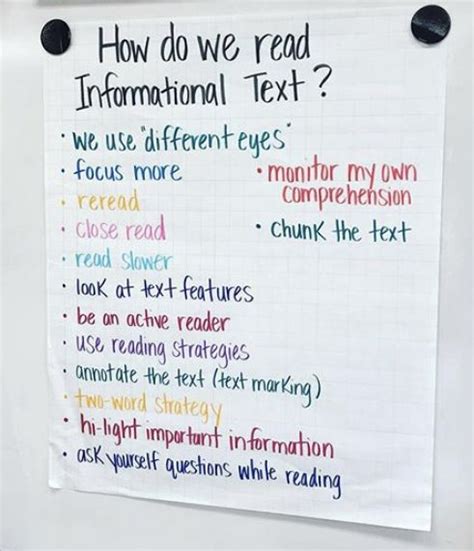 How do we read
Informational Text?
• we use "different eyes"
• focus more
• reread
• close read
• read slower
• look at text features
• be an active reader
• use reading strategies
• annotate the text (text marking)
• two-word strategy
• hi-light important information
• ask yourself questions while reading
• monitor my own
comprehension
• chunk the text